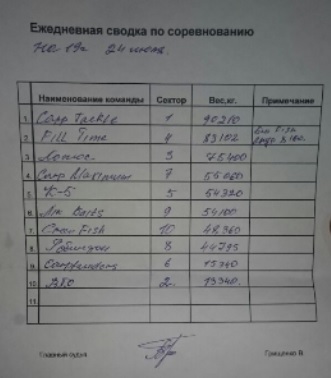 Ежедневная сводка по соревнованию
на 19⁰⁰ 24 июля
Наименование команды Сектор Вес,кг. Примечание
1. Carp Tackle 1 90210
2. Fill Time 4 83102
3. 3 75400
4. Carp Maximum 7 55060
5. К-5 5 54320
6. Baits 9 54100
7. Green Fish 10 48360
8. Робинзон 8 44795
9. 6 15340
10. 2. 13340.
11.
Главный судья Грищенко В.